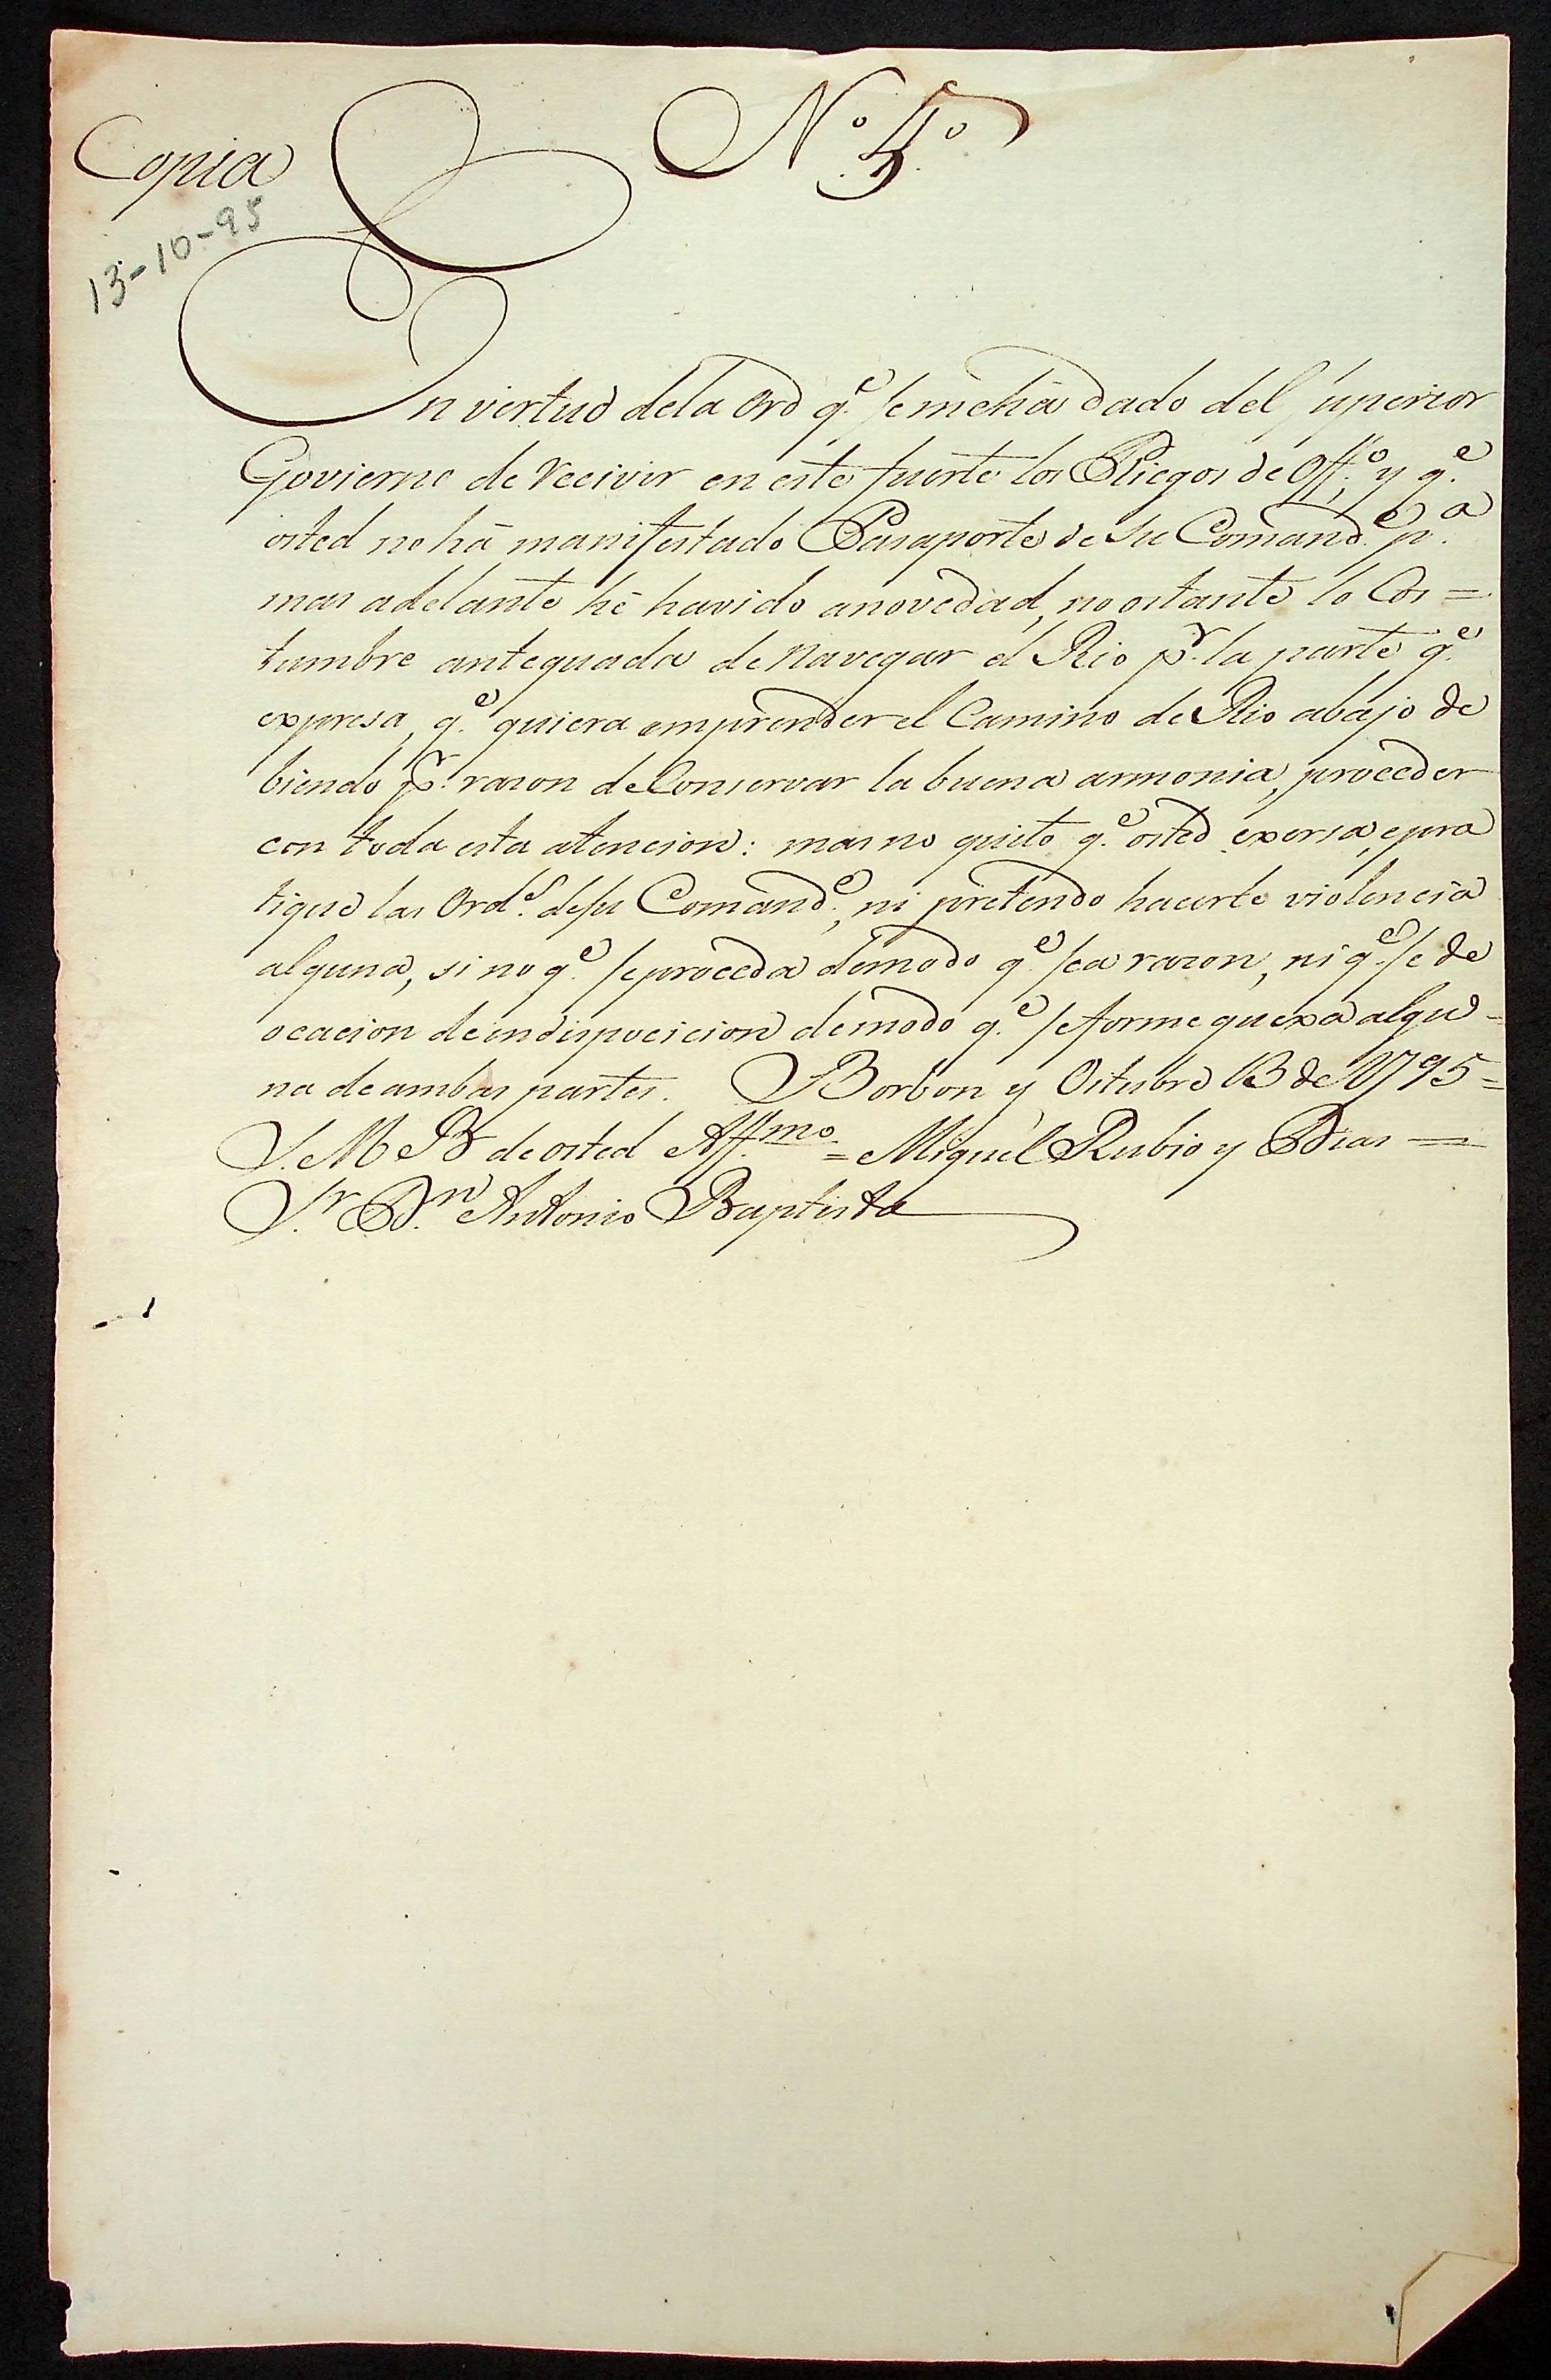 Copia
N.º 5.º
13-10-95
En virtud dela Ord q.e se meha dado del superior
Govierno de recivir en este fuerte los Pliegos de Off.º, y q.e
osted no hà manifestado Pasaporte de su Comand.e p.a
mas adelante hè havido anovedad, no ostante lo Cos=
tumbre antequada de navegar el Rio p.r la parte q.e
expresa, q.e quiera emprender el Camino de Rio abajo de
biendo p.r rason de Conservar la buena armonia, proceder
con toda esta atencion: mas no quito q.e osted exersa, e pra
tique las Ord.s desu Comand.e, ni pretendo hacerle violencia
alguna, si no q.e se proceda demodo q.e sea razon, ni q.e se de
ocacion de indispocicion demodo q.e se forme quexa algu-
na de ambas partes. Borbon y Octubre 13 de 1795=
S. M B de osted Aff.mo = Miguèl Rubio y Dias =
S.r D.n Antonio Baptista